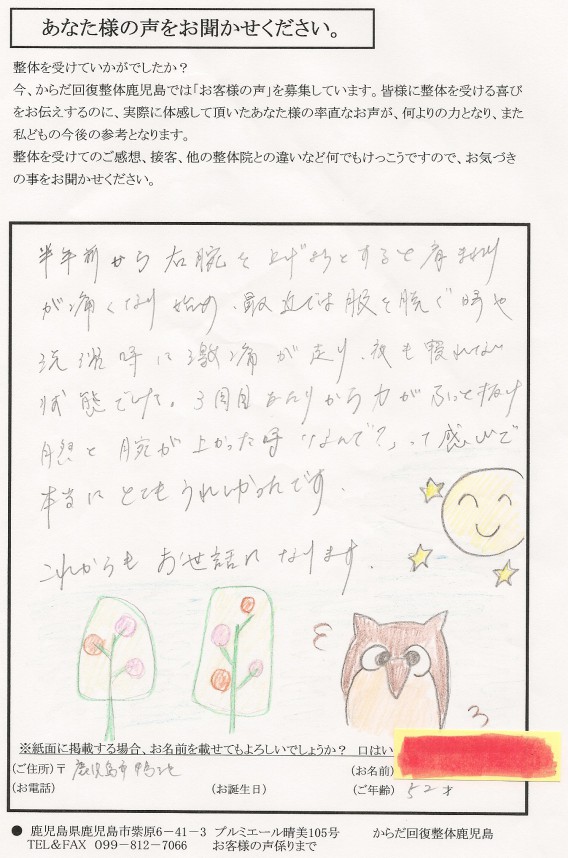 あなた様の声をお聞かせください。
整体を受けていかがでしたか？
今、からだ回復整体鹿児島では「お客様の声」を募集しています。皆様に整体を受ける喜び
をお伝えするのに、実際に体感して頂いたあなた様の率直なお声が、何よりの力となり、また
私どもの今後の参考となります。
整体を受けてのご感想、接客、他の整体院との違いなど何でもけっこうですので、お気づき
の事をお聞かせください。
半年前から右腕を上げようとすると肩まわり
が痛くなり始め、最近では服を脱ぐ時や
洗濯時に激痛が走り、夜も寝れない
状態でした。3回目あたりから力がふっと抜け
自然と腕が上がった時「なんで？」って感じで
本当にとてもうれしかったです。
これからもお世話になります。
※紙面に掲載する場合、お名前を載せてもよろしいでしょうか？ 口はい
(ご住所)〒 鹿児島市
(お名前)
(お電話) (お誕生日) (ご年齢) 52才
● 鹿児島県鹿児島市紫原6－41－3 プルミエール晴美105号 からだ回復整体鹿児島
TEL＆FAX 099－812－7066 お客様の声係りまで